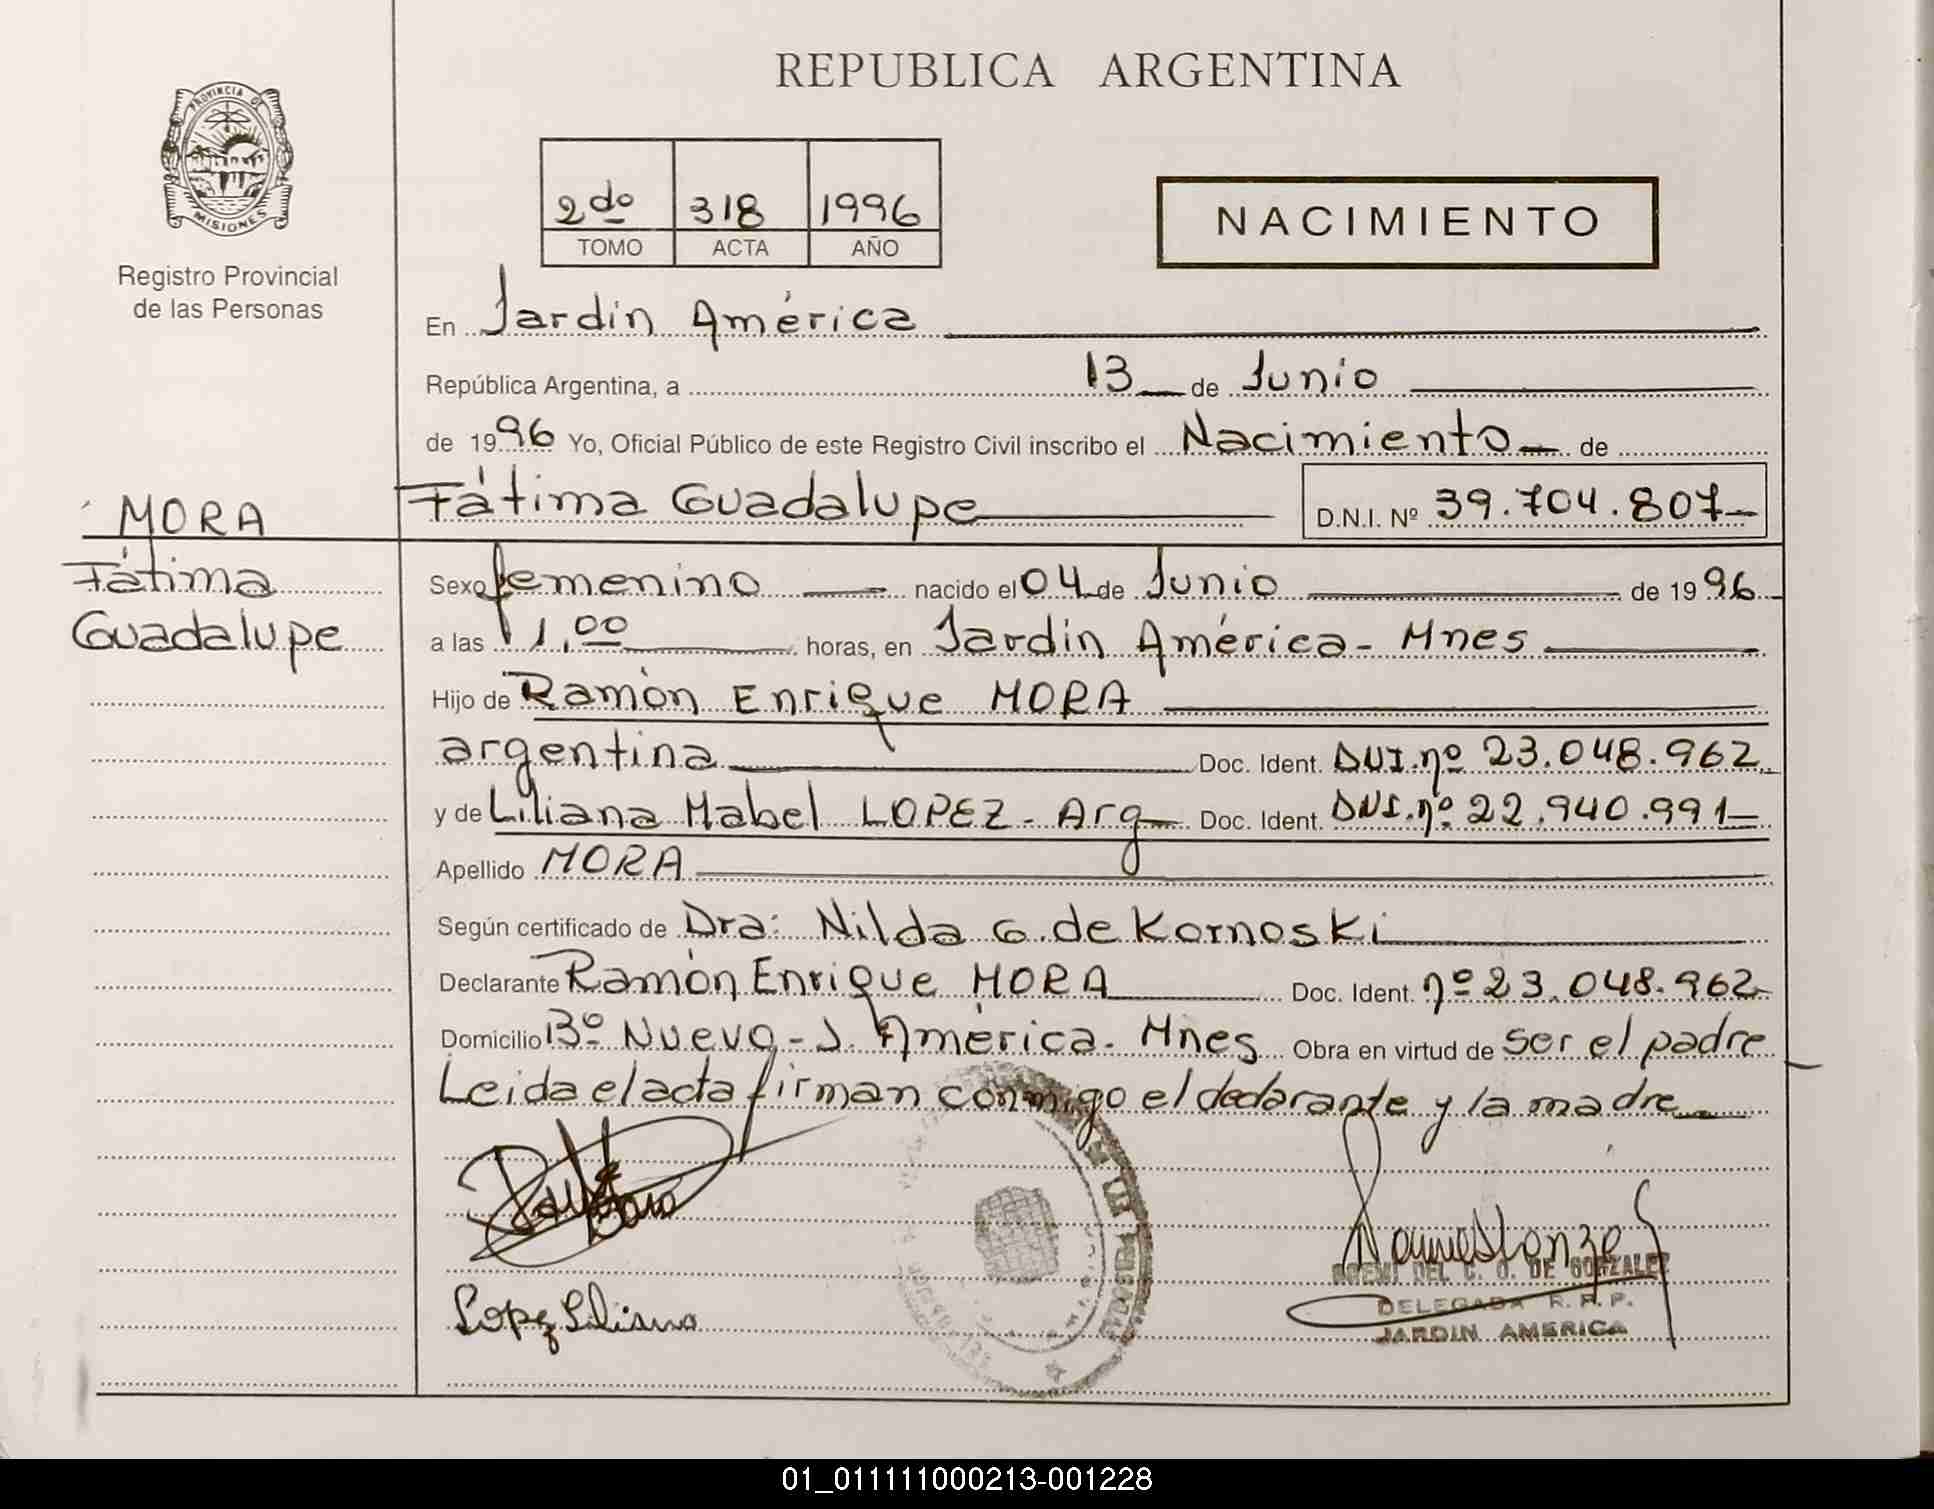 REPUBLICA ARGENTINA
PROVINCIA DE
MISIONES
Registro Provincial
de las Personas
2do 318 1996
TOMO ACTA AÑO
NACIMIENTO
En Jardin América
República Argentina, a 13 de Junio
de 1996 Yo, Oficial Público de este Registro Civil inscribo el Nacimiento de
MORA
Fátima Guadalupe D.N.I. Nº 39.704.807
Fátima
Guadalupe
Sexo femenino nacido el 04 de Junio de 1996
a las 1,00 horas, en Jardin América - Mnes
Hijo de Ramón Enrique MORA
argentina Doc. Ident. DNI. nº 23.048.962
y de Liliana Mabel LOPEZ - Arg Doc. Ident. DNI. nº 22.940.991
Apellido MORA
Según certificado de Dra: Nilda G. de Kornoski
Declarante Ramón Enrique MORA Doc. Ident. nº 23.048.962
Domicilio Bº Nuevo - J. América - Mnes Obra en virtud de ser el padre
Leida el acta firman conmigo el declarante y la madre
Lopez Liliana
DEL C. O. DE GONZALEZ
DELEGADA R. P. P.
JARDIN AMERICA
01_011111000213-001228